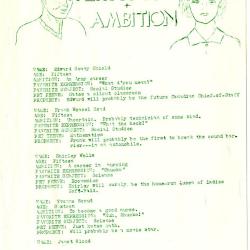 AMBITION
NAME: Edward Scott Shield
AGE: Fifteen
AMBITION: An Army career
FAVORITE EXPRESSION: "What d'you mean?"
FAVORITE SUBJECT: Social Studies
PET PEEVE: Hates a silent classroom
PROPHECY: Edward will probably be the future Canadian Chief-of-Staff
NAME: Frank
AGE: Fifteen
AMBITION: Uncertain. Probably technician of some kind.
FAVORITE EXPRESSION: "What the heck!"
FAVORITE SUBJECT: Social Studies
PET PEEVE:
PROPHECY: Frank will probably be the first to break the sound barrier--in an automobile.
NAME: Shirley Wells
AGE: Fifteen
AMBITION: A career in nursing
FAVORITE EXPRESSION: "Shucks"
FAVORITE SUBJECT: Science
PET PEEVE: Economics
PROPHECY: Shirley will surely be the
NAME: Yvonne
AGE: Sixteen
AMBITION: To become a good nurse.
FAVORITE EXPRESSION:
FAVORITE SUBJECT: Science
PET PEEVE: Just hates math.
PROPHECY: Will probably be a movie star.
NAME: Janet Blood